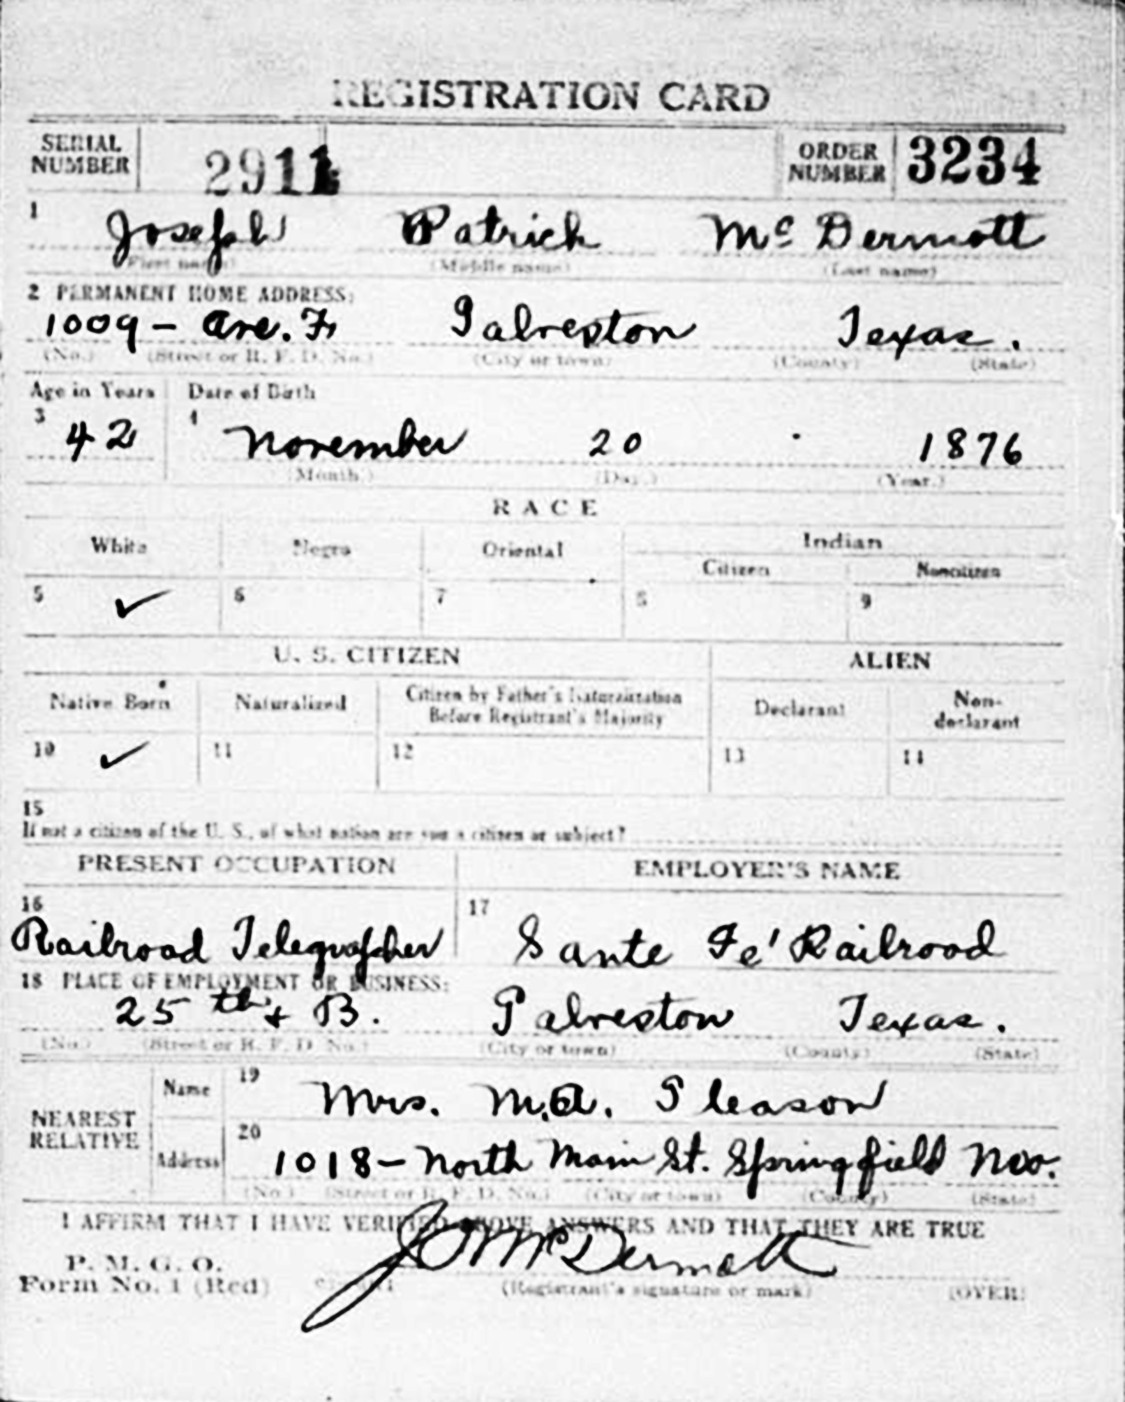 REGISTRATION CARD
SERIAL NUMBER 2911 ORDER NUMBER 3234
1 Joseph Patrick McDermott
(First name) (Middle name) (Last name)
2 PERMANENT HOME ADDRESS:
1009 - Ave. F Galveston Texas.
(No.) (Street or R. F. D. No.) (City or town) (County) (State)
Age in Years Date of Birth
3 42 4 November 20 1876
(Month.) (Day.) (Year.)
RACE
White Negro Oriental Indian
Citizen Noncitizen
5 ✓ 6 7 8 9
U. S. CITIZEN ALIEN
Native Born Naturalized Citizen by Father's Naturalization Before Registrant's Majority Declarant Non-declarant
10 ✓ 11 12 13 14
15
If not a citizen of the U. S., of what nation are you a citizen or subject?
PRESENT OCCUPATION EMPLOYER'S NAME
16 Railroad Telegrapher 17 Sante Fe' Railroad
18 PLACE OF EMPLOYMENT OR BUSINESS:
25th & B. Galveston Texas.
(No.) (Street or R. F. D. No.) (City or town) (County) (State)
NEAREST RELATIVE Name 19 Mrs. M.A. Gleason
Address 20 1018 - North Main St. Springfield
(No.) (Street or R. F. D. No.) (City or town) (County) (State)
I AFFIRM THAT I HAVE VERIFIED ABOVE ANSWERS AND THAT THEY ARE TRUE
P. M. G. O.
Form No. 1 (Red) McDermott
(Registrant's signature or mark) (OVER)